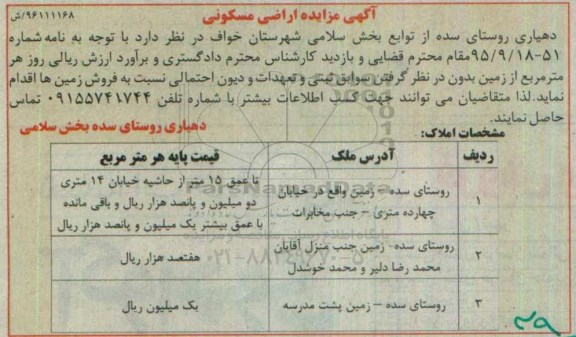 آگهی مزایده اراضی مسکونی
۹۶۱۱۱۱۶۸/ش
دهیاری روستای سده از توابع بخش سلامی شهرستان خواف در نظر دارد با توجه به نامه شماره
۵۱-۹۵/۹/۱۸مقام محترم قضایی و بازدید کارشناس محترم دادگستری و برآورد ارزش ریالی روز هر
مترمربع از زمین بدون در نظر گرفتن سوابق ثبتی و تعهدات و دیون احتمالی نسبت به فروش زمین ها اقدام
نماید.لذا متقاضیان می توانند جهت کسب اطلاعات بیشتر با شماره تلفن ۰۹۱۵۵۷۴۱۷۴۴ تماس
حاصل نمایند.
دهیاری روستای سده بخش سلامی
مشخصات املاک:
ردیف آدرس ملک قیمت پایه هر متر مربع
۱
روستای سده – زمین واقع در خیابان
چهارده متری – جنب مخابرات
تا عمق ۱۵ متر از حاشیه خیابان ۱۴ متری
دو میلیون و پانصد هزار ریال و باقی مانده
با عمق بیشتر یک میلیون و پانصد هزار ریال
۲
روستای سده- زمین جنب منزل آقایان
محمد رضا دلیر و محمد خوشدل
هفتصد هزار ریال
۳ روستای سده – زمین پشت مدرسه یک میلیون ریال
ParsNamadData
۰۲۱-۸۸۳۴۹۶۷۰-۵